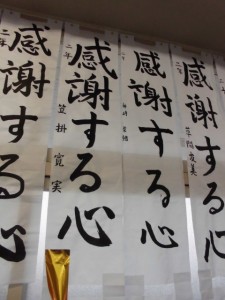 感謝する心
二年
感謝する心
二年 笠掛 寛実
感謝する心
感謝する心
二年